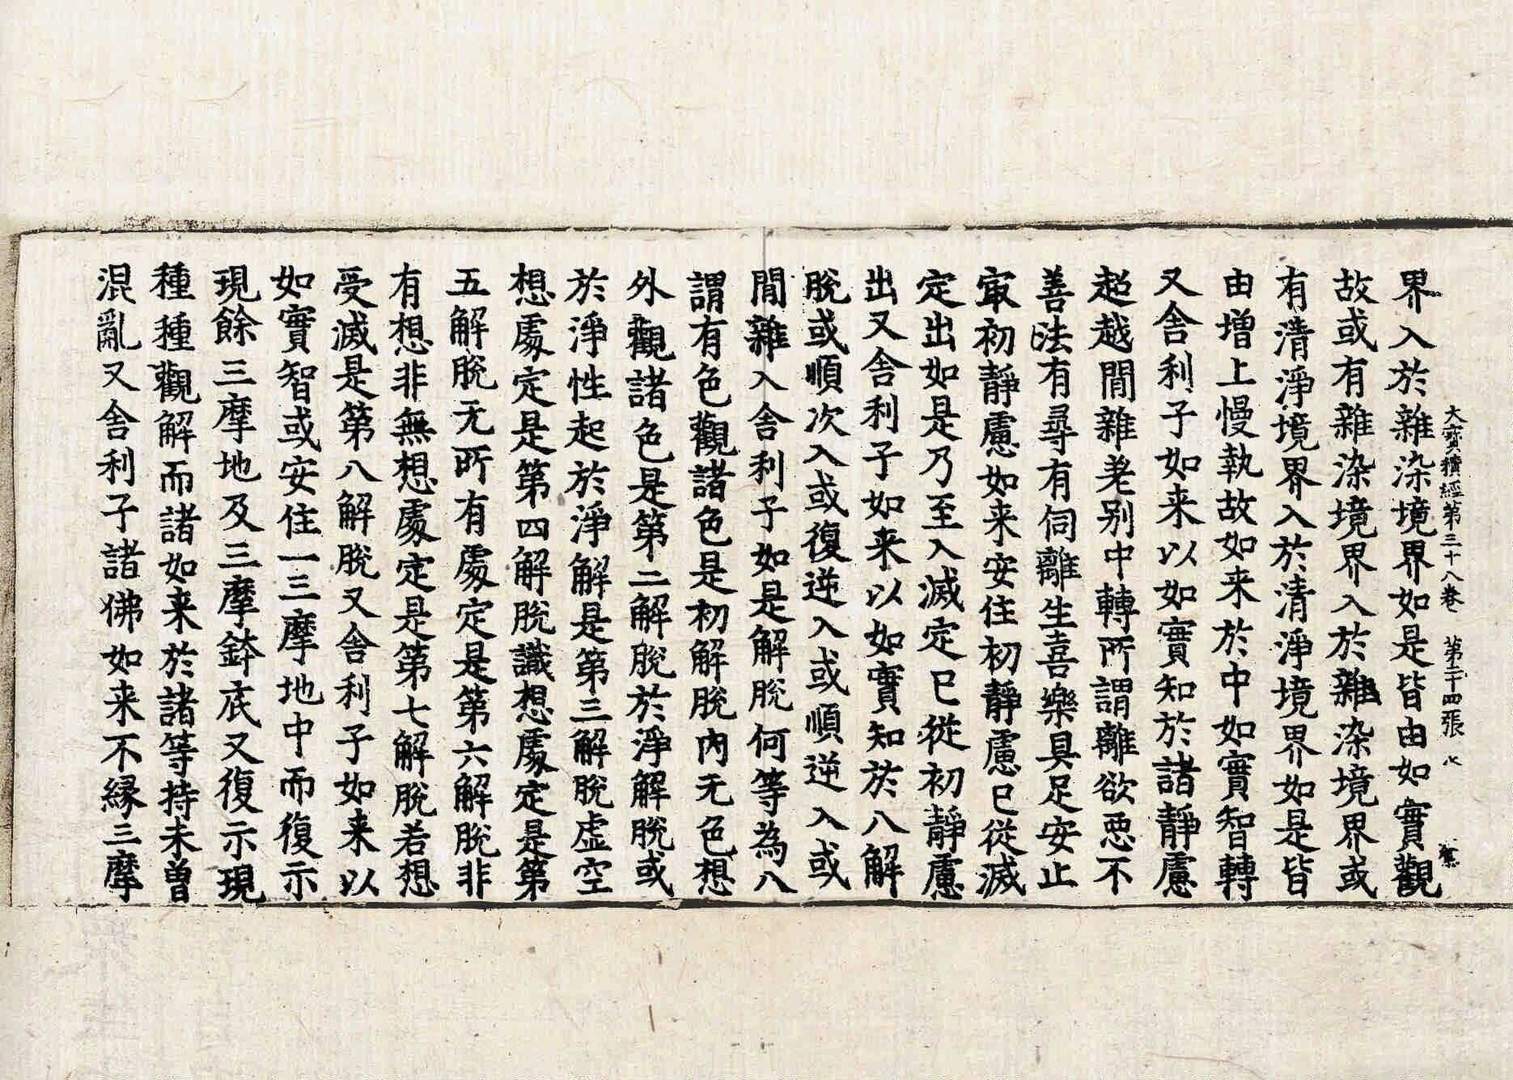 大寶積經第三十八卷　第二十四張　
界入於雜染境界如是皆由如實觀
故或有雜染境界入於雜染境界或
有清淨境界入於清淨境界如是皆
由增上慢執故如来於中如實智轉
又舍利子如来以如實知於諸靜慮
超越間雜差別中轉所謂離欲惡不
善法有尋有伺離生喜樂具足安止
㝡初靜慮如来安住初靜慮已從滅
定出如是乃至入滅定已從初靜慮
出又舍利子如来以如實知於八解
脫或順次入或復逆入或順逆入或
間雜入舍利子如是解脫何等為八
謂有色觀諸色是初解脫內无色想
外觀諸色是第二解脫於淨解脫或
於淨性起於淨解是第三解脫虛空
想處定是第四解脫識想處定是第
五解脫无所有處定是第六解脫非
有想非無想處定是第七解脫若想
受滅是第八解脫又舍利子如来以
如實智或安住一三摩地中而復示
現餘三摩地及三摩鉢底又復示現
種種觀解而諸如来於諸等持未曾
混亂又舍利子諸佛如来不緣三摩